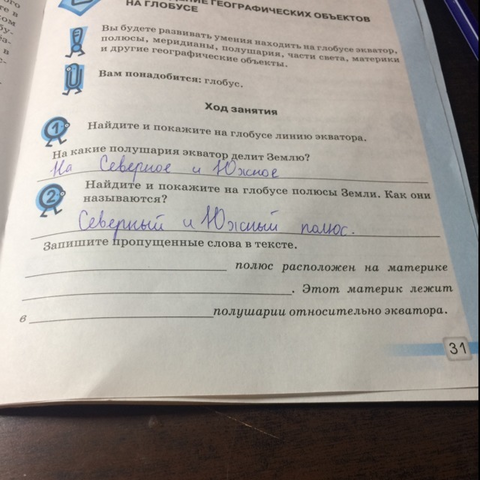 ГЕОГРАФИЧЕСКИХ ОБЪЕКТОВ
НА ГЛОБУСЕ
Вы будете развивать умения находить на глобусе экватор,
полюсы, меридианы, полушария, части света, материки
и другие географические объекты.
Вам понадобится: глобус.
Ход занятия
1 Найдите и покажите на глобусе линию экватора.
На какие полушария экватор делит Землю?
На Северное и Южное
2 Найдите и покажите на глобусе полюсы Земли. Как они
называются?
Северный и Южный полюс.
Запишите пропущенные слова в тексте.
полюс расположен на материке
. Этот материк лежит
в полушарии относительно экватора.
31